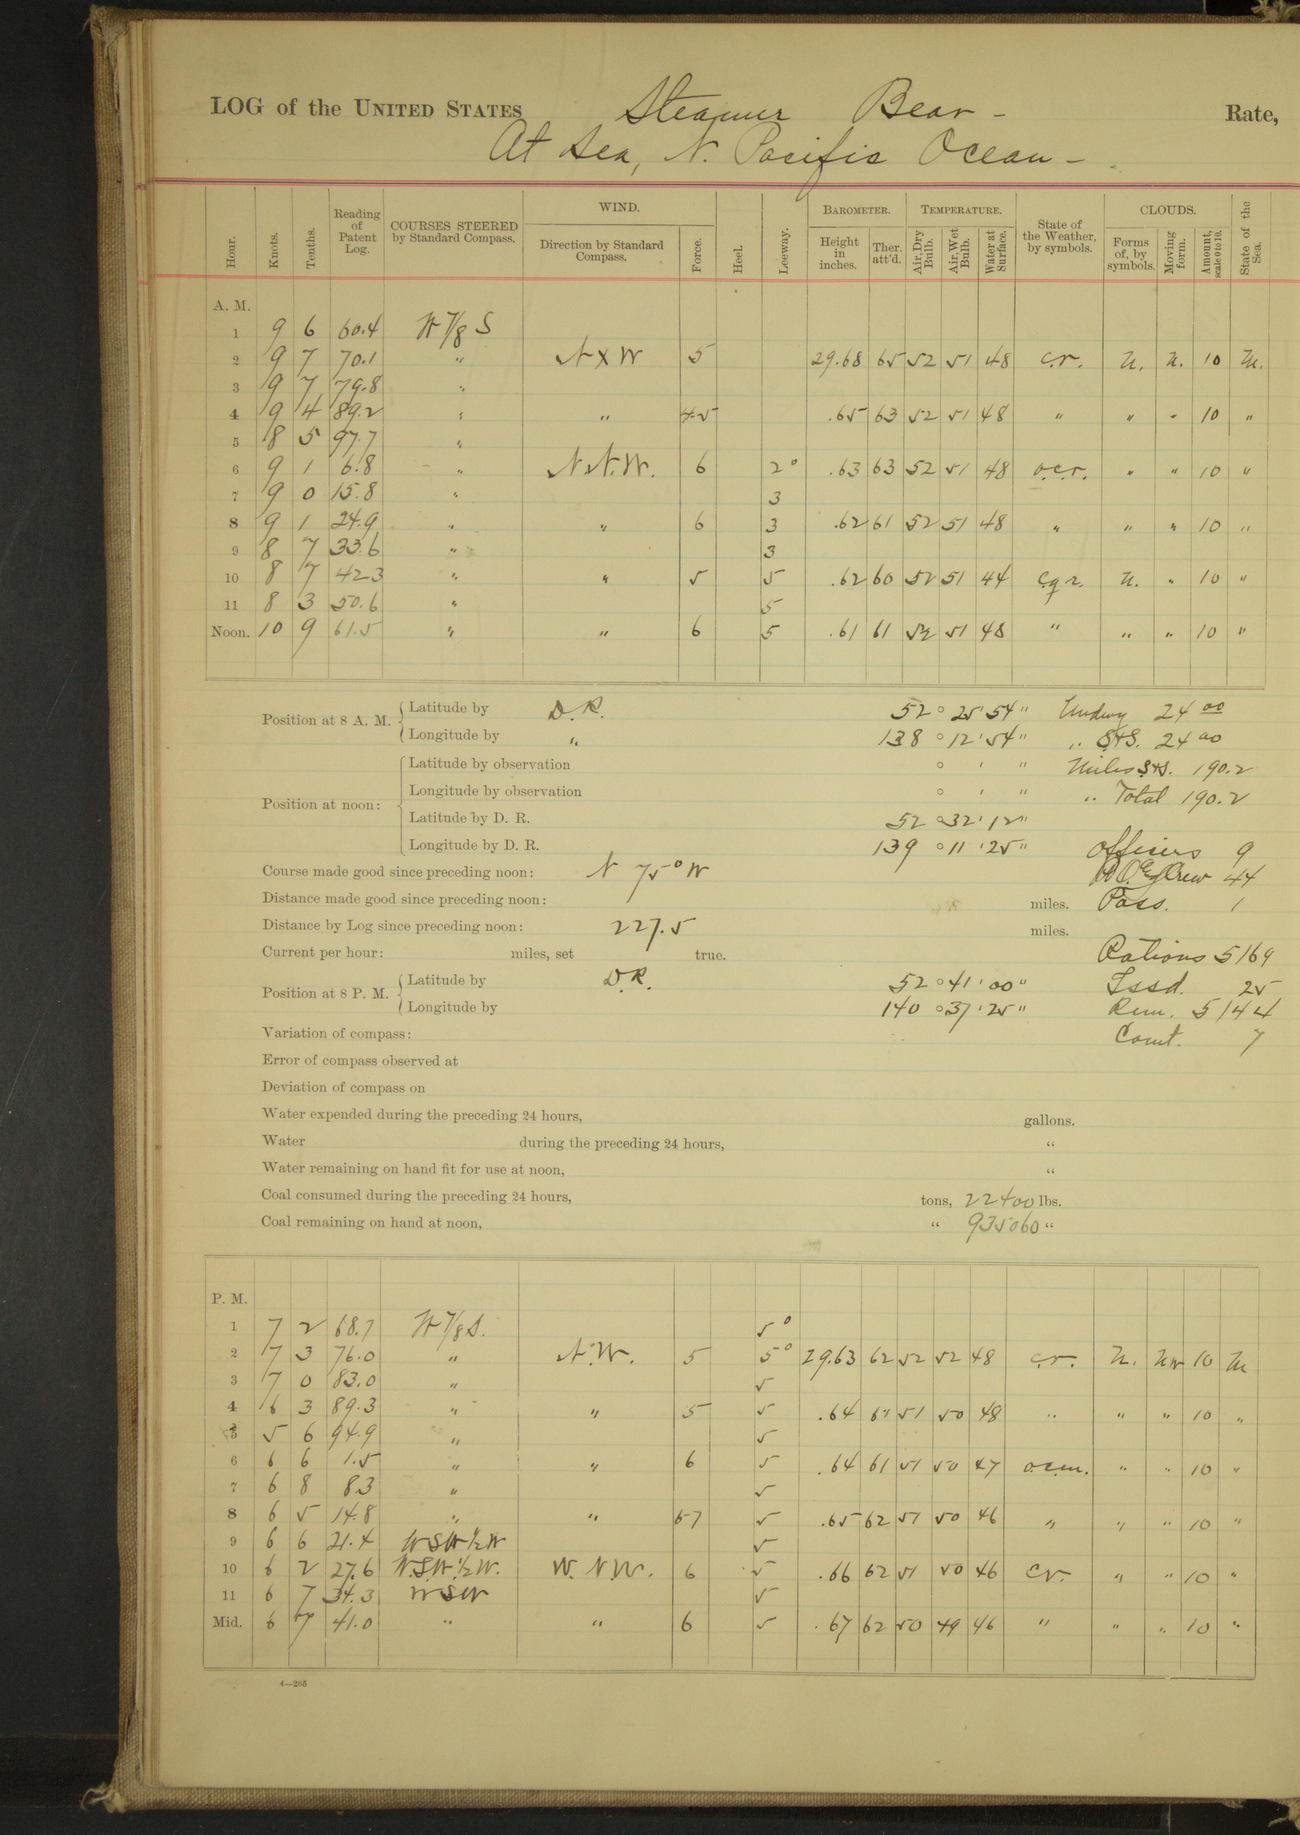 LOG of the UNITED STATES Steamer Bear - Rate,
At Sea, N. Pacific Ocean -
Hour. Knots. Tenths. Reading of Patent Log. COURSES STEERED by Standard Compass. WIND. Direction by Standard Compass. Force. Heel. Leeway. BAROMETER. Height in inches. Ther. att'd. TEMPERATURE. Air, Dry Bulb. Air, Wet Bulb. Water at Surface. State of the Weather, by symbols. CLOUDS. Forms of, by symbols. Moving form. Amount, scale 0 to 10. State of the Sea.
A. M.
1 9 6 60.4 W 7/8 S
2 9 7 70.1 " N x W 5 29.68 65 52 51 48 c.r. n. n. 10 m.
3 9 7 79.8 "
4 9 4 89.2 " " 4-5 .65 63 52 51 48 " " " 10 "
5 8 5 97.7 "
6 9 1 6.8 " N.N.W. 6 2° .63 63 52 51 48 o.c.r. " " 10 "
7 9 0 15.8 " 3
8 9 1 24.9 " " 6 3 .62 61 52 51 48 " " " 10 "
9 8 7 33.6 " 3
10 8 7 42.3 " " 5 5 .62 60 52 51 44 c.q.r. n. " 10 "
11 8 3 50.6 " 5
Noon. 10 9 61.5 " " 6 5 .61 61 52 51 48 " " " 10 "
Position at 8 A. M. Latitude by D. R. 52 ° 25 ' 54 " Undwy 24 00
Longitude by " 138 ° 12 ' 54 " " S&S. 24 00
Position at noon: Latitude by observation ° ' " Miles S&S. 190.2
Longitude by observation ° ' " " Total 190.2
Latitude by D. R. 52 ° 32 ' 12 "
Longitude by D. R. 139 ° 11 ' 25 " Officers 9
Course made good since preceding noon: N 75° W Crew 44
Distance made good since preceding noon: miles. Pass. 1
Distance by Log since preceding noon: 227.5 miles.
Current per hour: miles, set true. Rations 5169
Position at 8 P. M. Latitude by D. R. 52 ° 41 ' 00 " Issd. 25
Longitude by 140 ° 37 ' 25 " Rem. 5144
Variation of compass: Comt. 7
Error of compass observed at
Deviation of compass on
Water expended during the preceding 24 hours, gallons.
Water during the preceding 24 hours, "
Water remaining on hand fit for use at noon, "
Coal consumed during the preceding 24 hours, tons, 22400 lbs.
Coal remaining on hand at noon, " 935060 "
P. M.
1 7 2 68.7 W 7/8 S. 5°
2 7 3 76.0 " N.W. 5 5° 29.63 62 52 52 48 c.r. n. NW 10 m
3 7 0 83.0 " 5
4 6 3 89.3 " " 5 5 .64 61 51 50 48 " " " 10 "
5 5 6 94.9 " 5
6 6 6 1.5 " " 6 5 .64 61 51 50 47 o.c.m. " " 10 "
7 6 8 8.3 " 5
8 6 5 14.8 " " 6-7 5 .65 62 51 50 46 " " " 10 "
9 6 6 21.4 WSW 1/2 W 5
10 6 2 27.6 W.S.W. 1/2 W. W. N.W. 6 5 .66 62 51 50 46 c.r. " " 10 "
11 6 7 34.3 WSW 5
Mid. 6 7 41.0 " " 6 5 .67 62 50 49 46 " " " 10 "
4—265